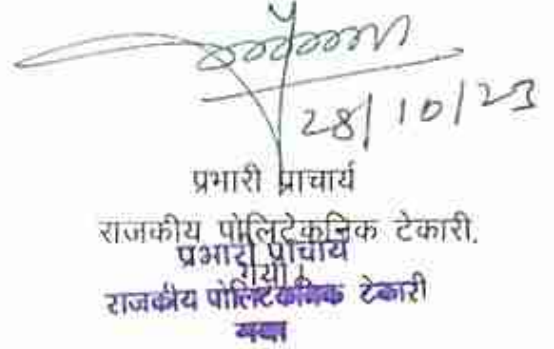 28/10/23
प्रभारी प्राचार्य
राजकीय पोलिटेकनिक टेकारी,
प्रभारी प्राचार्य
गया।
राजकीय पोलिटेकनिक टेकारी
गया